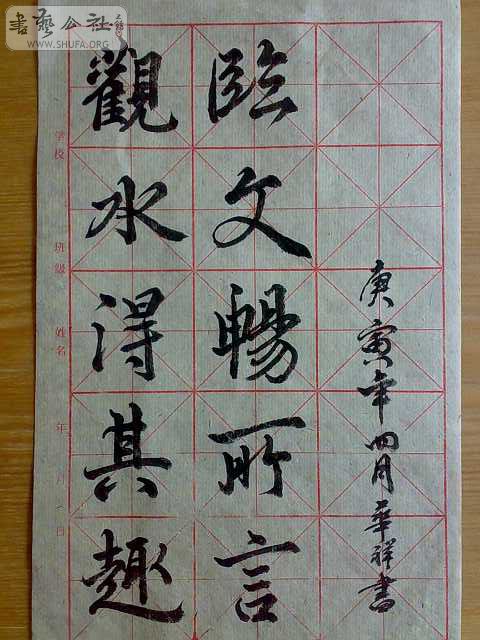 書藝公社
WWW.SHUFA.ORG
学校 班級 姓名 年 月 日
觀水得其趣
臨文暢所言
庚寅年四月華祥書